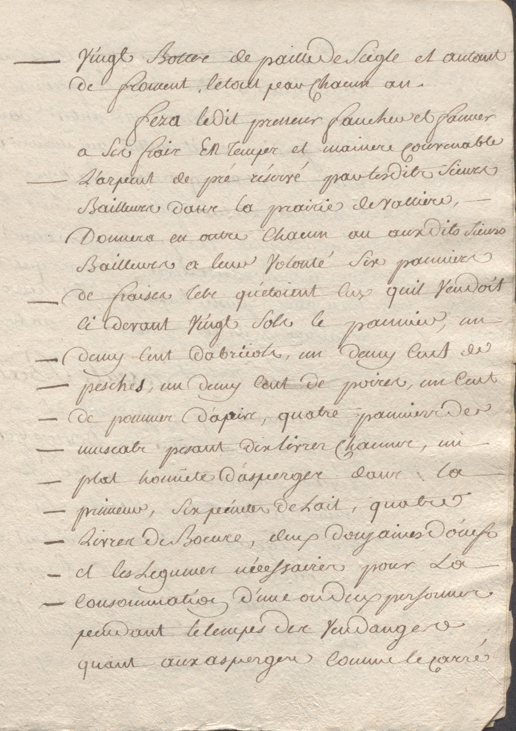 Vingt Bottes de paille de Seigle et autant
de froment, le tout par chacun an.
fera ledit preneur faucher et fanner
a Ses frais En temps et maniere convenable
L'arpent de pré réservé par lesdits Sieurs
Bailleurs dans la prairie de valliere,
Donnera en outre chacun an auxdits Sieurs
Bailleurs a leur Volonté Six panniers
de fraises tels qu'etoient Ceux quil Vendoit
Ci devant Vingt Sols le pannier, un
demy Cent d'abricots, un demy Cent de
pesches, un demy Cent de poires, un Cent
de pommes d'apire, quatre panniers de
muscats pesant dix livres chacune, un
plat honnete d'asperges dans la
primeur, Six peintes de Lait, quatre
Livres de Beurre, deux douzaines d'oeufs
et les Legumes nécessaires pour La
Consommation d'une ou deux personnes
pendant le temps des Vendanges
quant aux asperges comme le carré